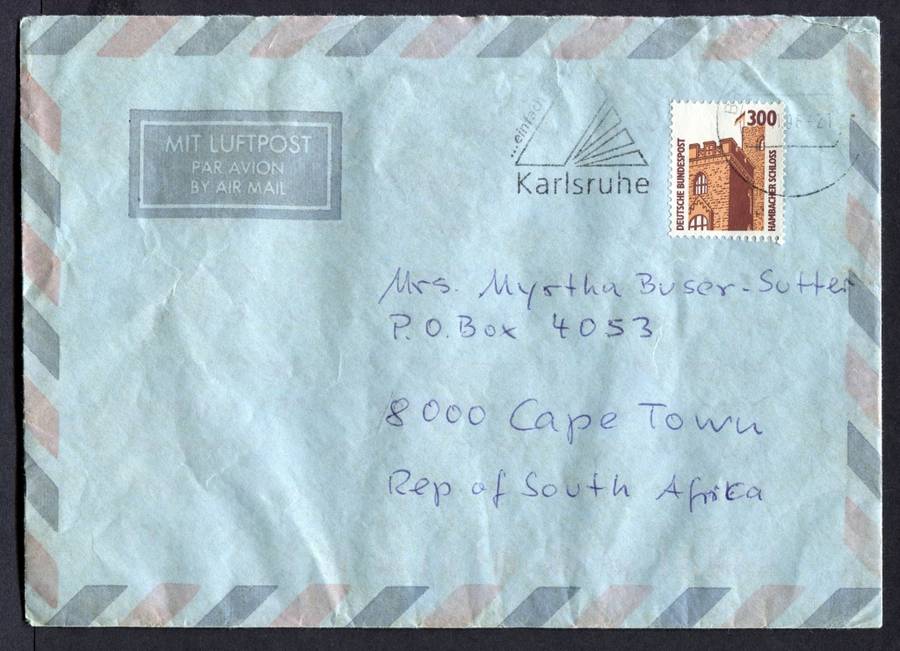 MIT LUFTPOST
PAR AVION
BY AIR MAIL
...einfach
Karlsruhe
300
DEUTSCHE BUNDESPOST
HAMBACHER SCHLOSS
Mrs. Myrtha Buser-Sutter
P.O.Box 4053
8000 Cape Town
Rep of South Afrika